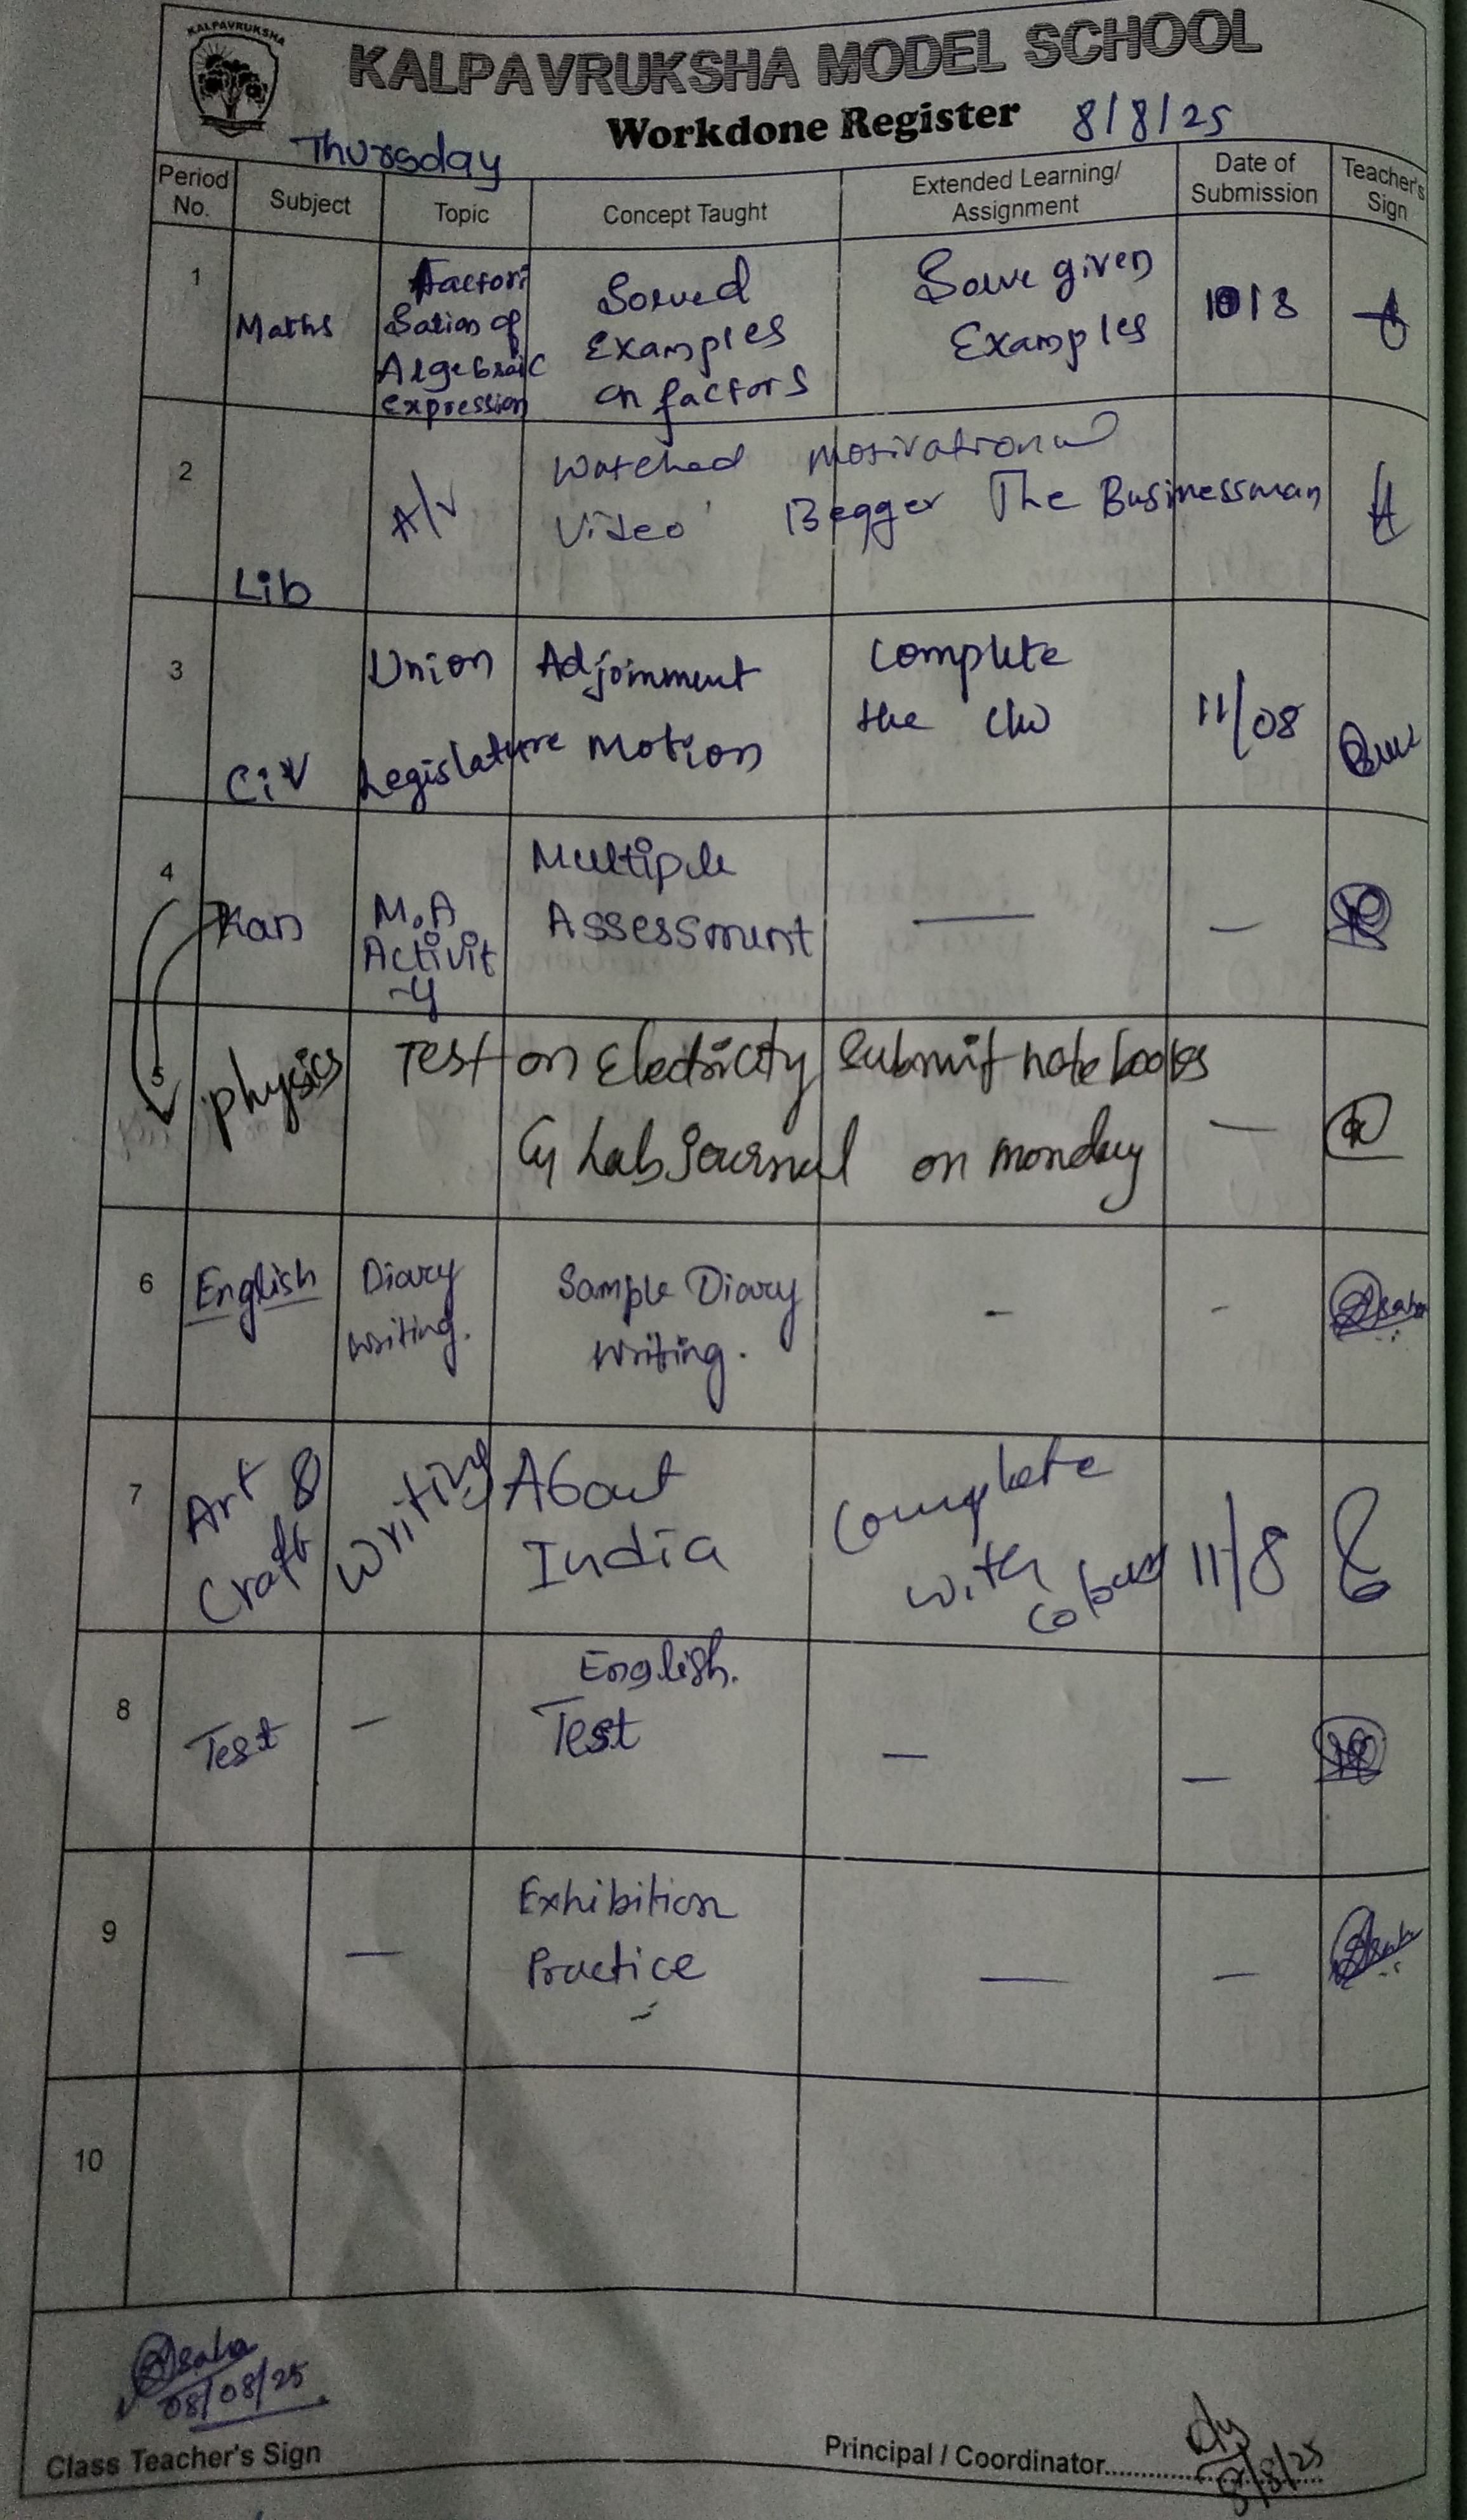 KALPAVRUKSHA
KALPAVRUKSHA MODEL SCHOOL
Workdone Register 8/8/25
Thursday
Period No. Subject Topic Concept Taught Extended Learning/ Assignment Date of Submission Teacher's Sign
1 Maths Factori sation of Algebraic expression Solved Examples on factors Solve given Examples 10/8
2 Lib A/V Watched Motivational Video' Begger The Businessman
3 Civ Union Legislature Adjornment Motion Complete the CW 11/08
4 Kan M.A Activit -y Multiple Assessment — —
5 physics Test on Electricity Submit note books & Lab Journal on monday —
6 English Diary writing. Sample Diary writing. - -
7 Art & Craft Writing About India Complete with colours 11/8
8 Test — English. Test — —
9 — Exhibition Practice — —
10
08/08/25
Class Teacher's Sign
Principal / Coordinator..................
8/8/25